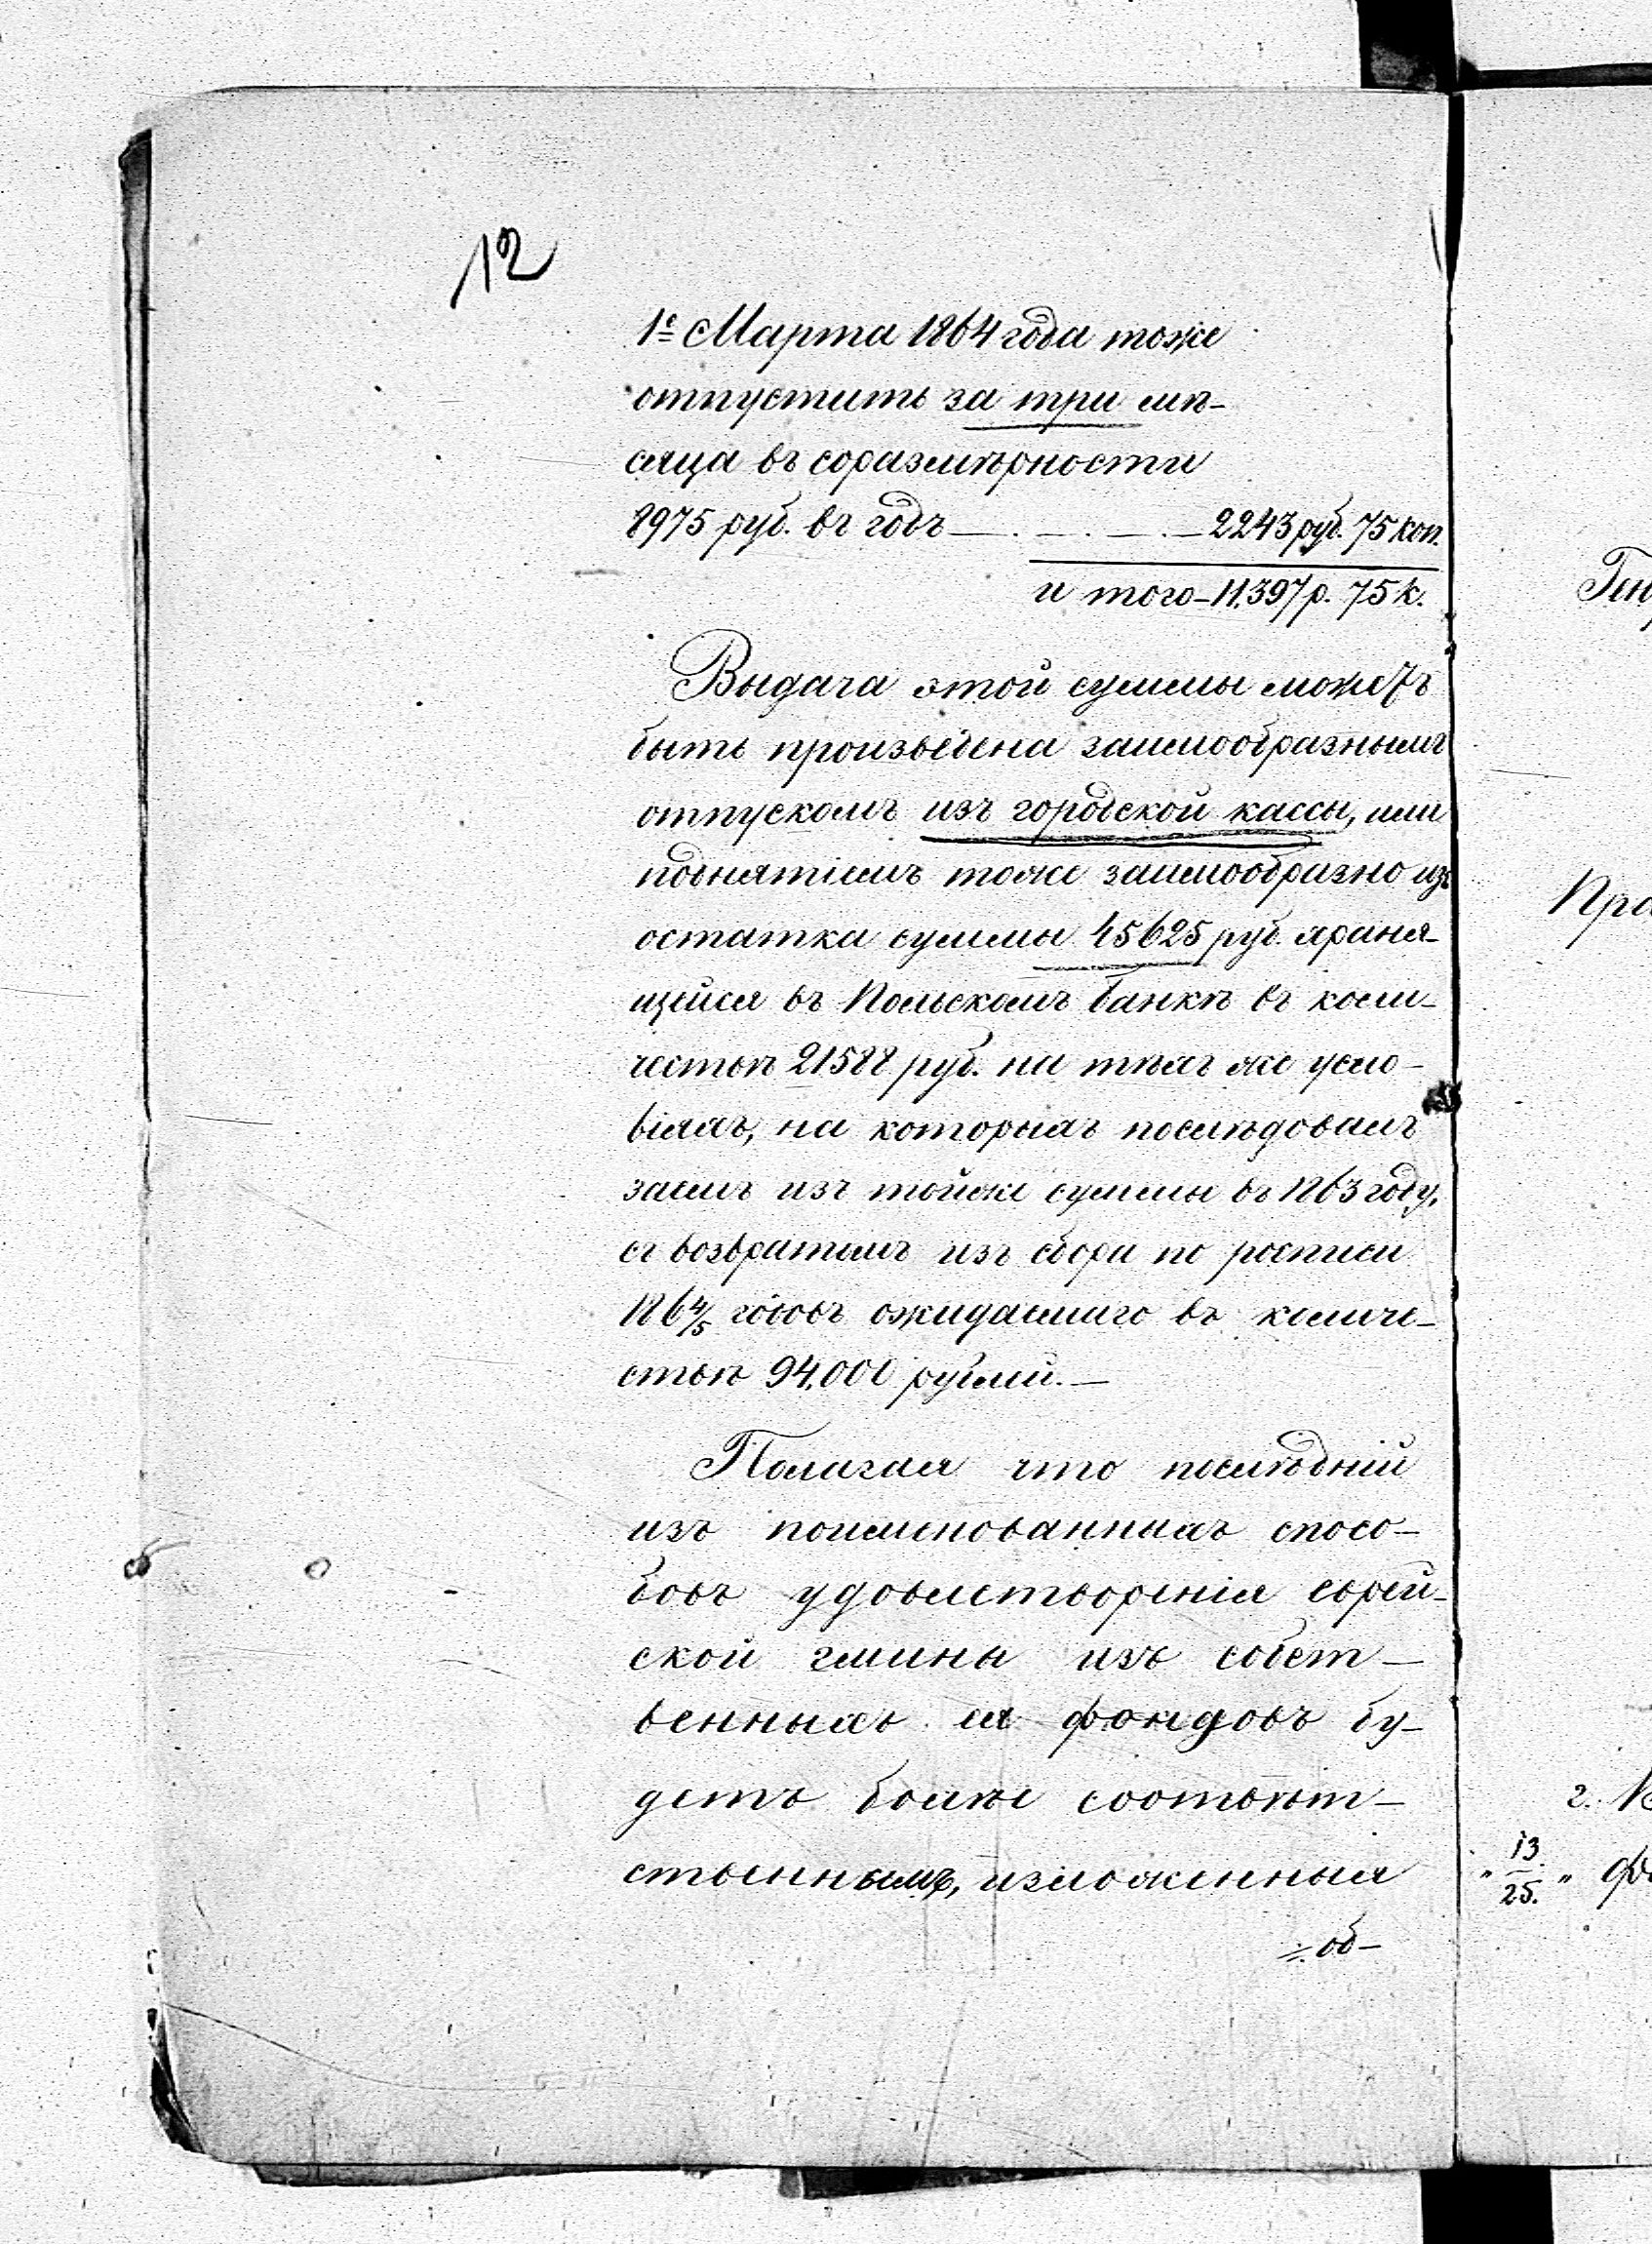 12
1е Марта 1864 года тоже
отпустить за три мѣ-
сяца въ соразмѣрности
8975 руб. въ годъ —. —. —. — 2243 руб. 75 коп.
и того - 11,397 р. 75 к.
Выдача этой суммы можетъ
быть произведена заимообразнымъ
отпускомъ изъ городской кассы, или
поднятіемъ тоже заимообразно изъ
остатка суммы 45625 руб. храня-
щейся въ Польскомъ банкѣ въ коли-
чествѣ 21588 руб. на тѣхъ же усло-
віяхъ, на которыхъ послѣдовалъ
заемъ изъ тойже суммы въ 1863 году,
съ возвратомъ изъ сбора по росписи
1864/5 годовъ ожидаемаго въ количе-
ствѣ 94,000 рублей. —
Полагая что послѣдній
изъ поименованныхъ спосо-
бовъ удовлетворенія еврей-
ской гмины изъ собст-
венныхъ ея фондовъ бу-
детъ болѣе соотвѣт-
ственнымъ, изложенныя
об-
Ген
Пра
г. В
" 13/25. " Фе